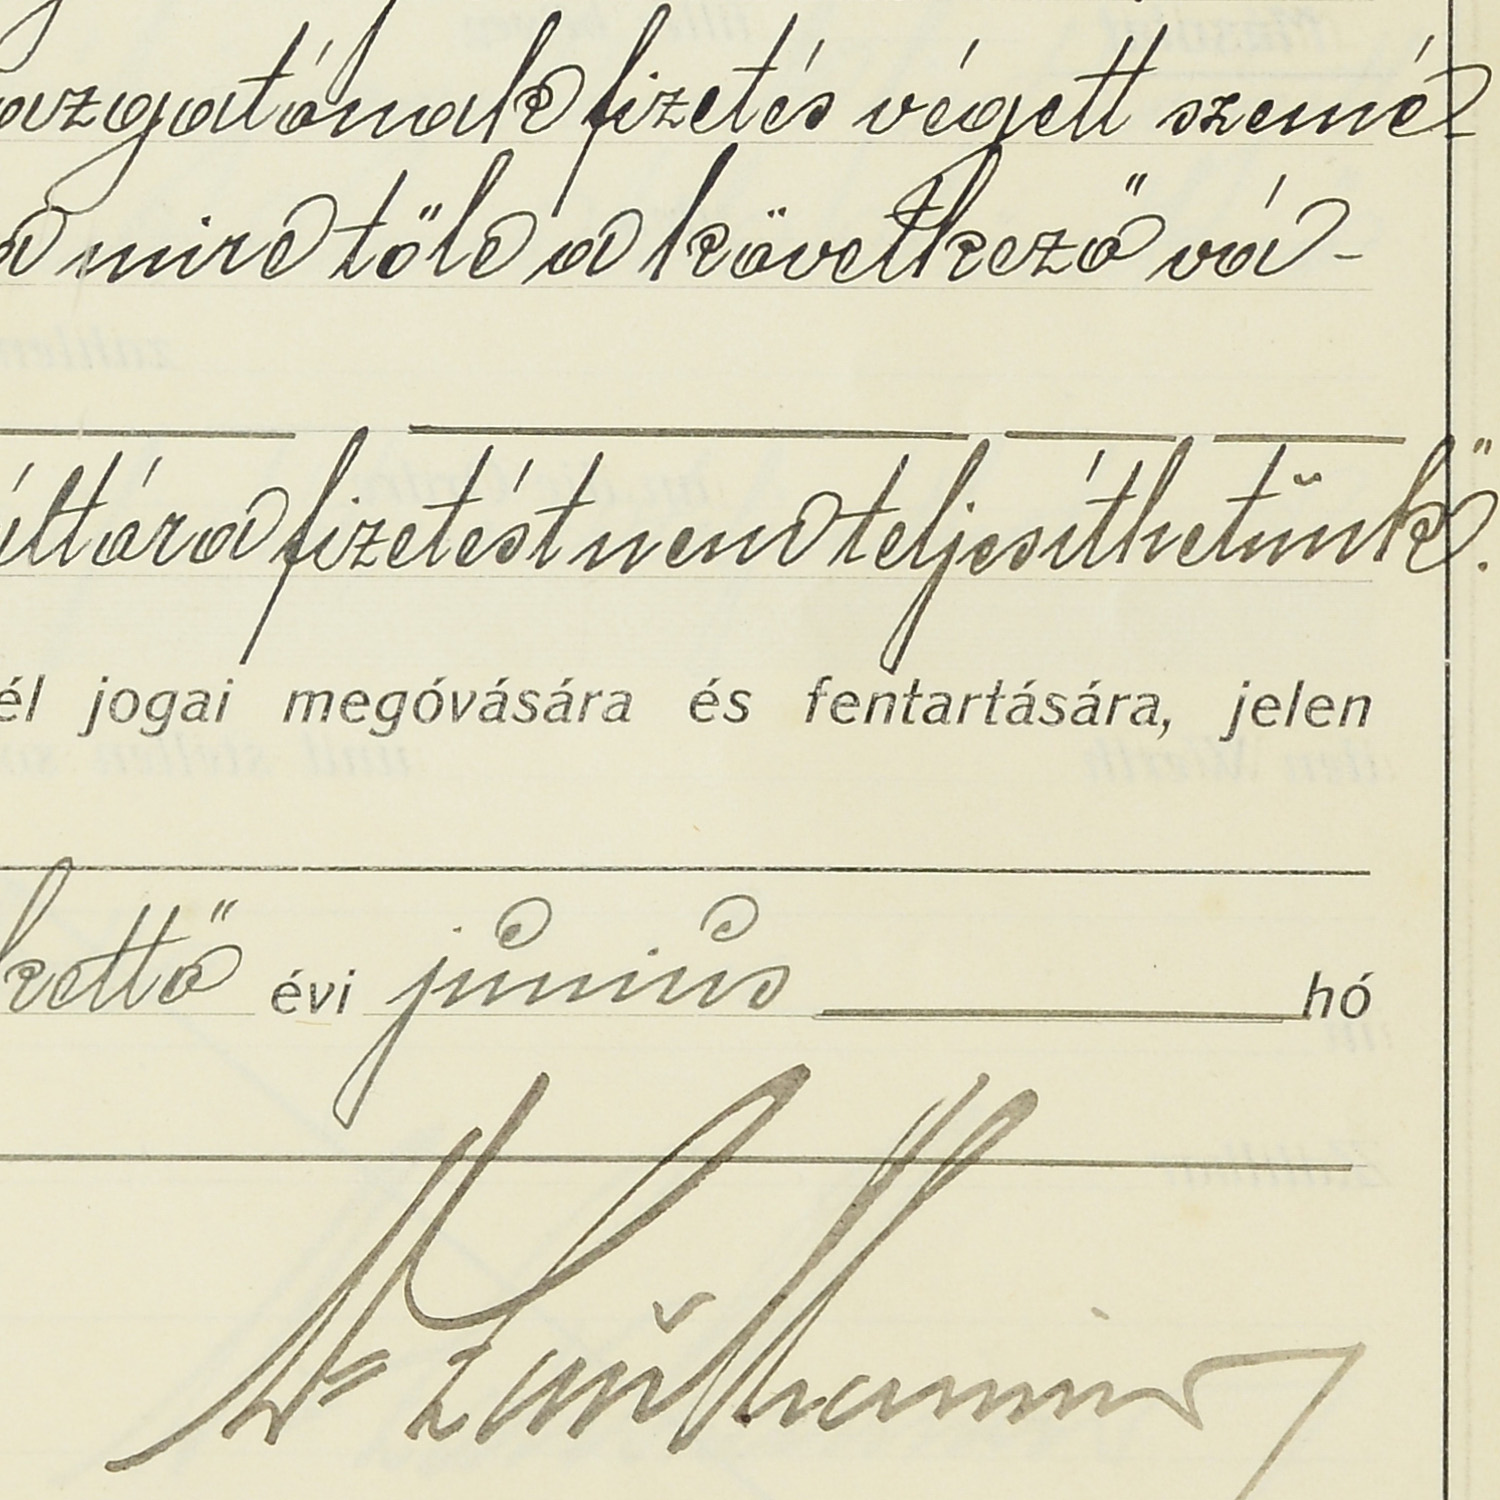 azgatónak fizetés végett szemé-
a mire tőle a következő vá-
últára fizetést nem teljesíthetünk".
él jogai megóvására és fentartására, jelen
kettő évi június hó